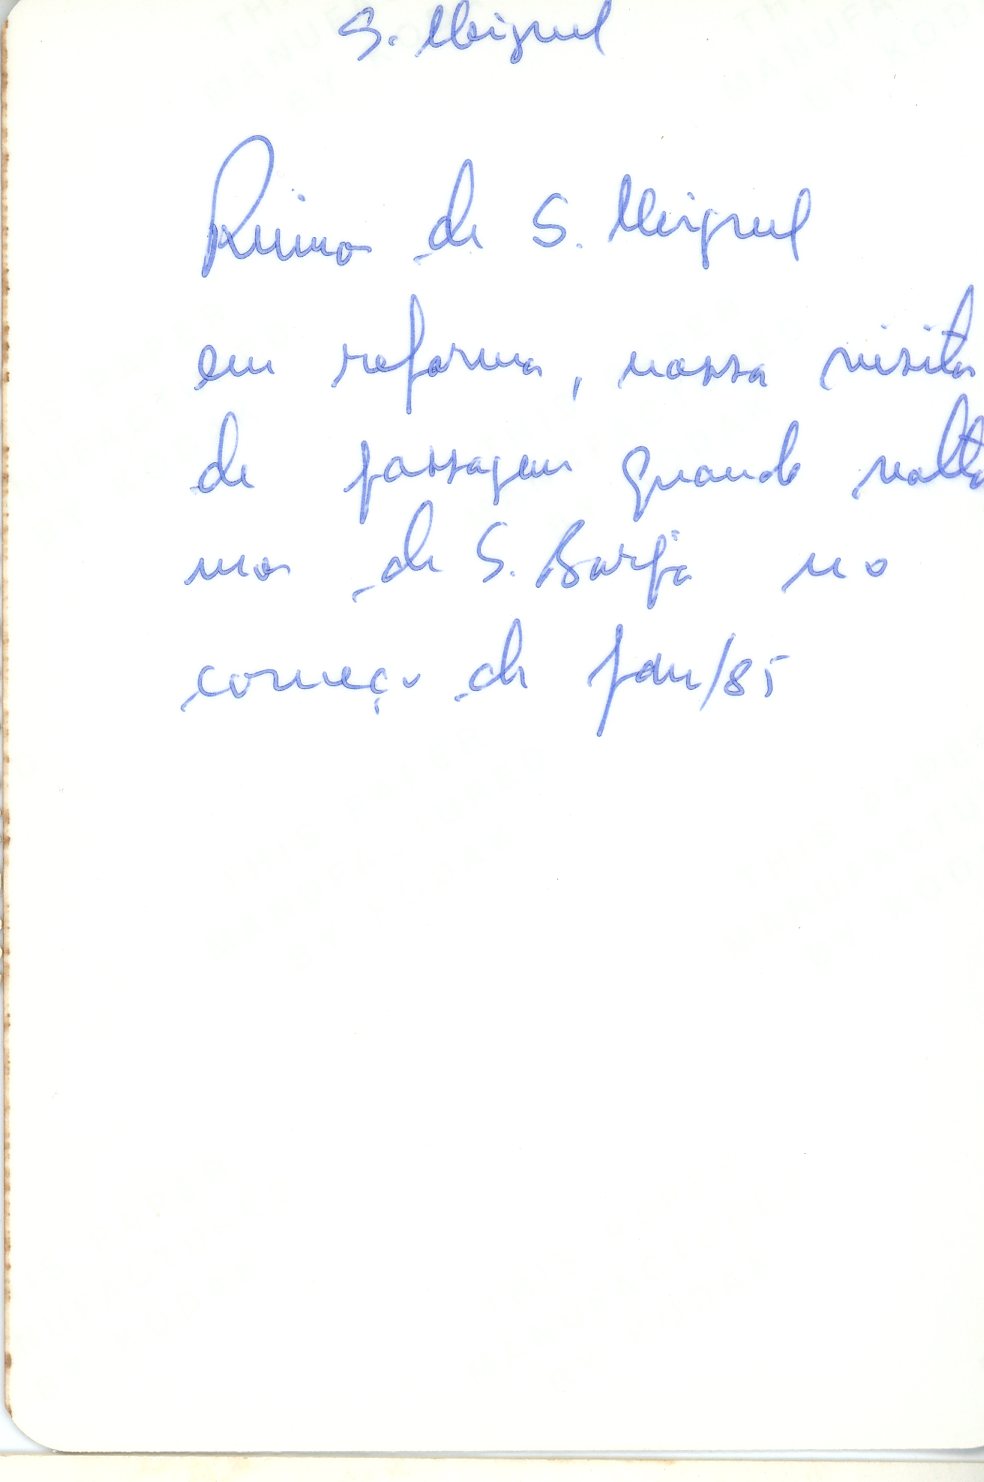 S. Miguel
Ruinas de S. Miguel
em reforma, nossa visita
de passagem quando volta
mos de S. Borja no
começo de Jan/85